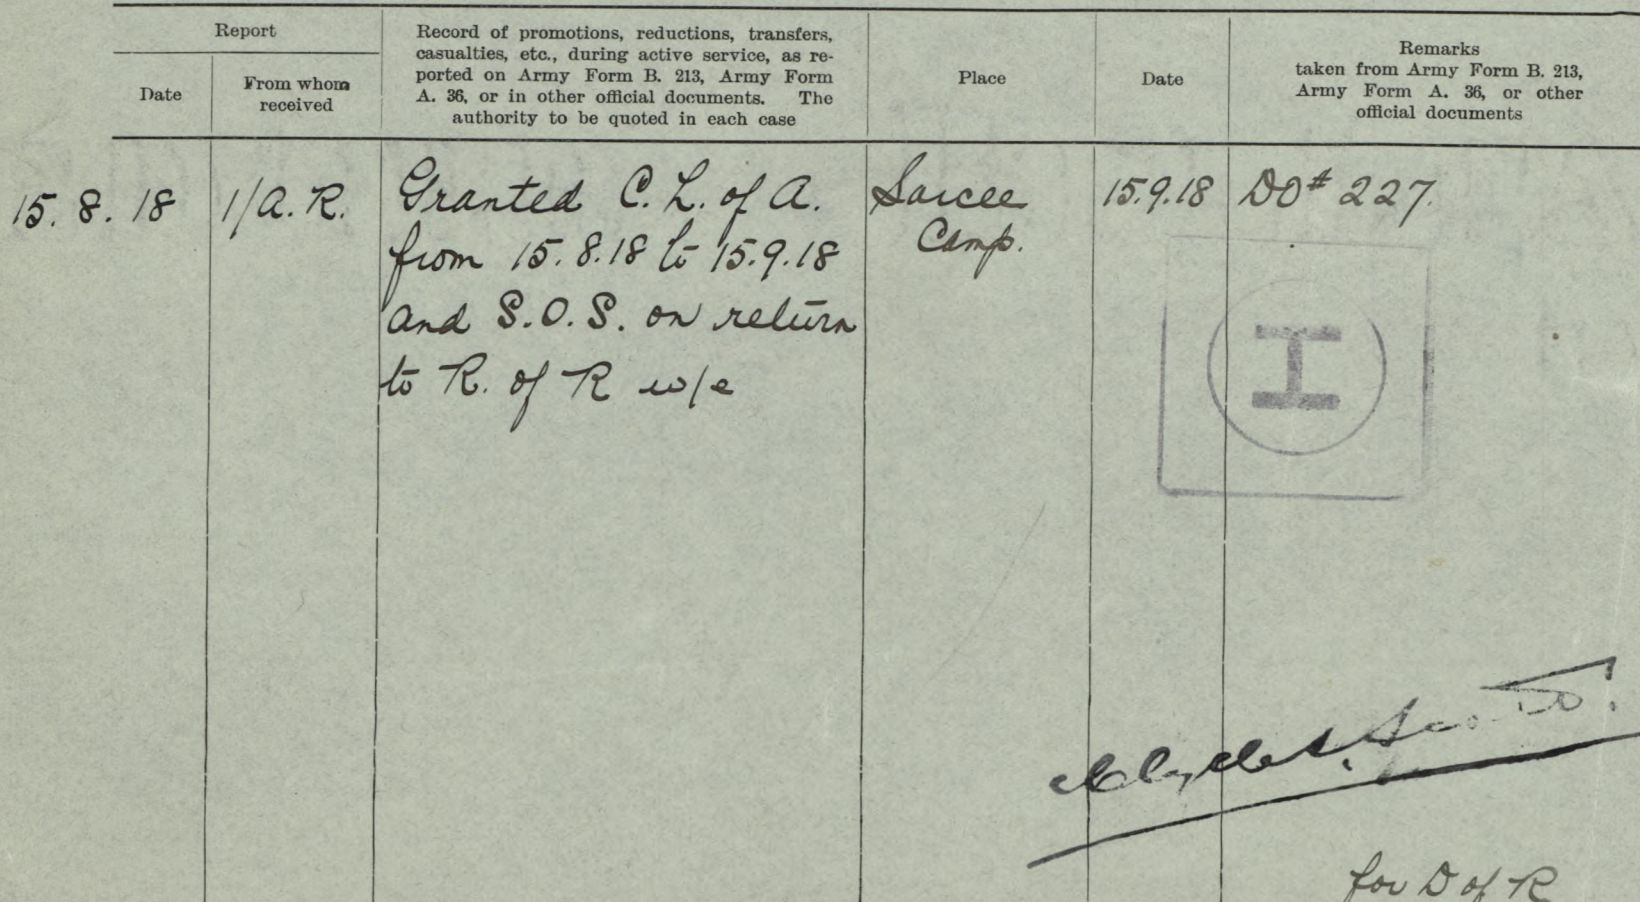 Report
Date
From whom
received
Record of promotions, reductions, transfers,
casualties, etc., during active service, as re-
ported on Army Form B. 213, Army Form
A. 36, or in other official documents. The
authority to be quoted in each case
Place
Date
Remarks
taken from Army Form B. 213,
Army Form A. 36, or other
official documents
15. 8. 18
1/A. R.
Granted C. L. of A.
from 15.8.18 to 15.9.18
and S.O.S. on return
to R. of R w/e
Sarcee
Camp.
15.9.18
DO# 227.
H
for D of R